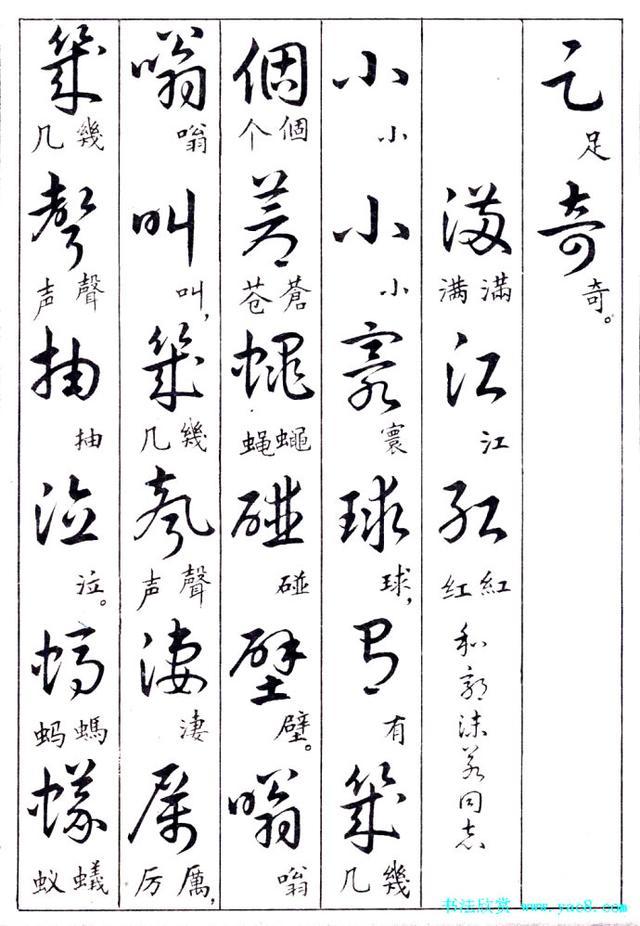 足奇
足奇。
滿江紅
满滿江红紅
和郭沫若同志
小小寰球有幾
小小寰球,有几幾
個蒼蠅碰壁嗡
个個苍蒼蝇蠅碰壁。嗡
嗡叫幾聲淒厲
嗡叫,几幾声聲淒厉厲,
幾聲抽泣螞蟻
几幾声聲抽泣。蚂螞蚁蟻
书法欣赏 www.yac8.com